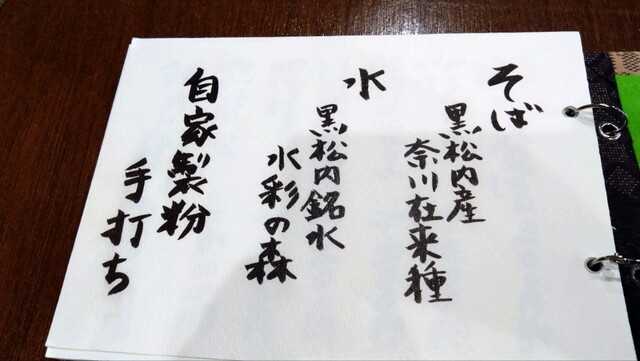 そば
黒松内産
奈川在来種
水
黒松内銘水
水彩の森
自家製粉
手打ち